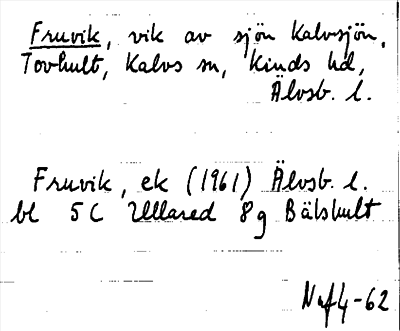 Fruvik, vik av sjön Kalvsjön,
Tovhult, Kalvs sn, Kinds hd,
Älvsb. l.
Fruvik, ek (1961) Älvsb. l.
bl 5C Ullared 8g Bälshult
NAf4-62